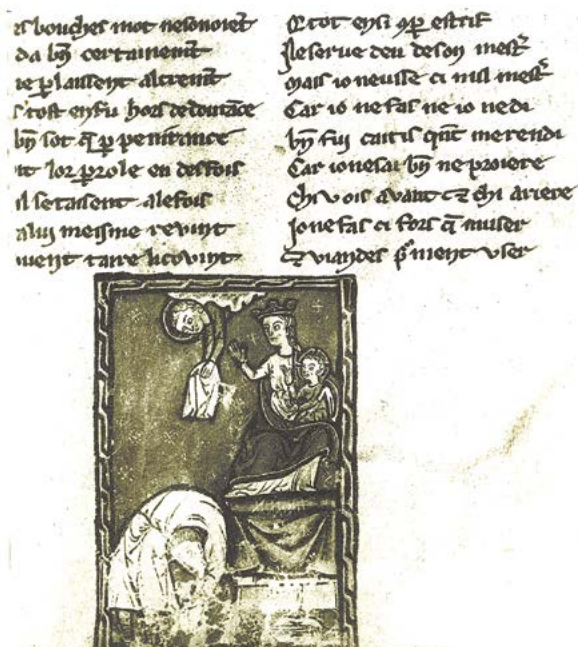 bouches mot nesonoiēt
da bn̄ certainemt̄
plaissent altremt̄
tost ensu hors dedoutāce
bn̄ sot q̄ p penitance
it lor prole en desfois
il setaisent alefois
alui meisme revint
ment taire licovint
Et tot ensi ꝯ par estrif
Je serve deu deson mest̄
Mais io neusse ci nul mest̄
Car io nefas ne io nedi
bn̄ fui caitis qn̄t merendi
Car ionesai bn̄ ne proiere
Chi vois avant ⁊ chi ariere
Jonefas ci fors q̄ muser
⁊ viandes p nient user